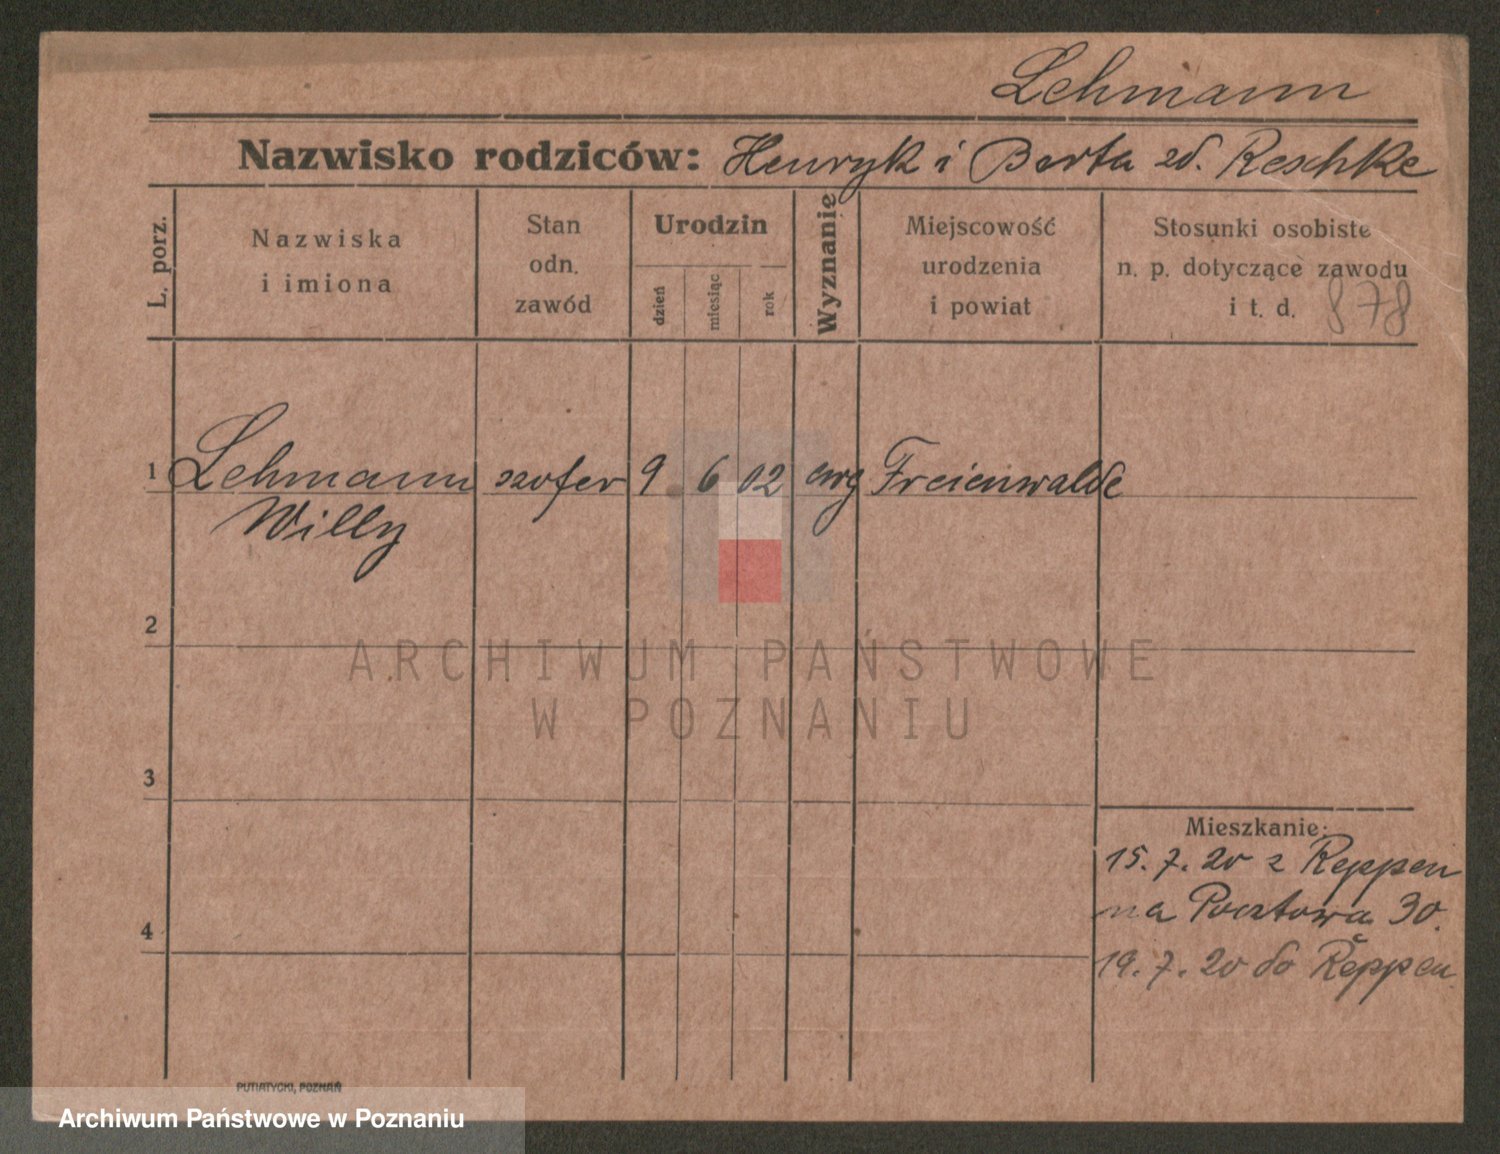 Lehmann
Nazwisko rodziców: Henryk i Berta zd. Reschke
L. porz.
Nazwiska
i imiona
Stan
odn.
zawód
Urodzin
dzień
miesiąc
rok
Wyznanie
Miejscowość
urodzenia
i powiat
Stosunki osobiste
n. p. dotyczące zawodu
i t. d. 878
1 Lehmann szofer 9 6 02 ewg Freienwalde
Willy
2
3
4
Mieszkanie:
15.7.20 z Reppen
na Pocztowa 30.
19.7.20 do Reppen
PUTIATYCKI, POZNAŃ
ARCHIWUM PAŃSTWOWE
W POZNANIU
Archiwum Państwowe w Poznaniu